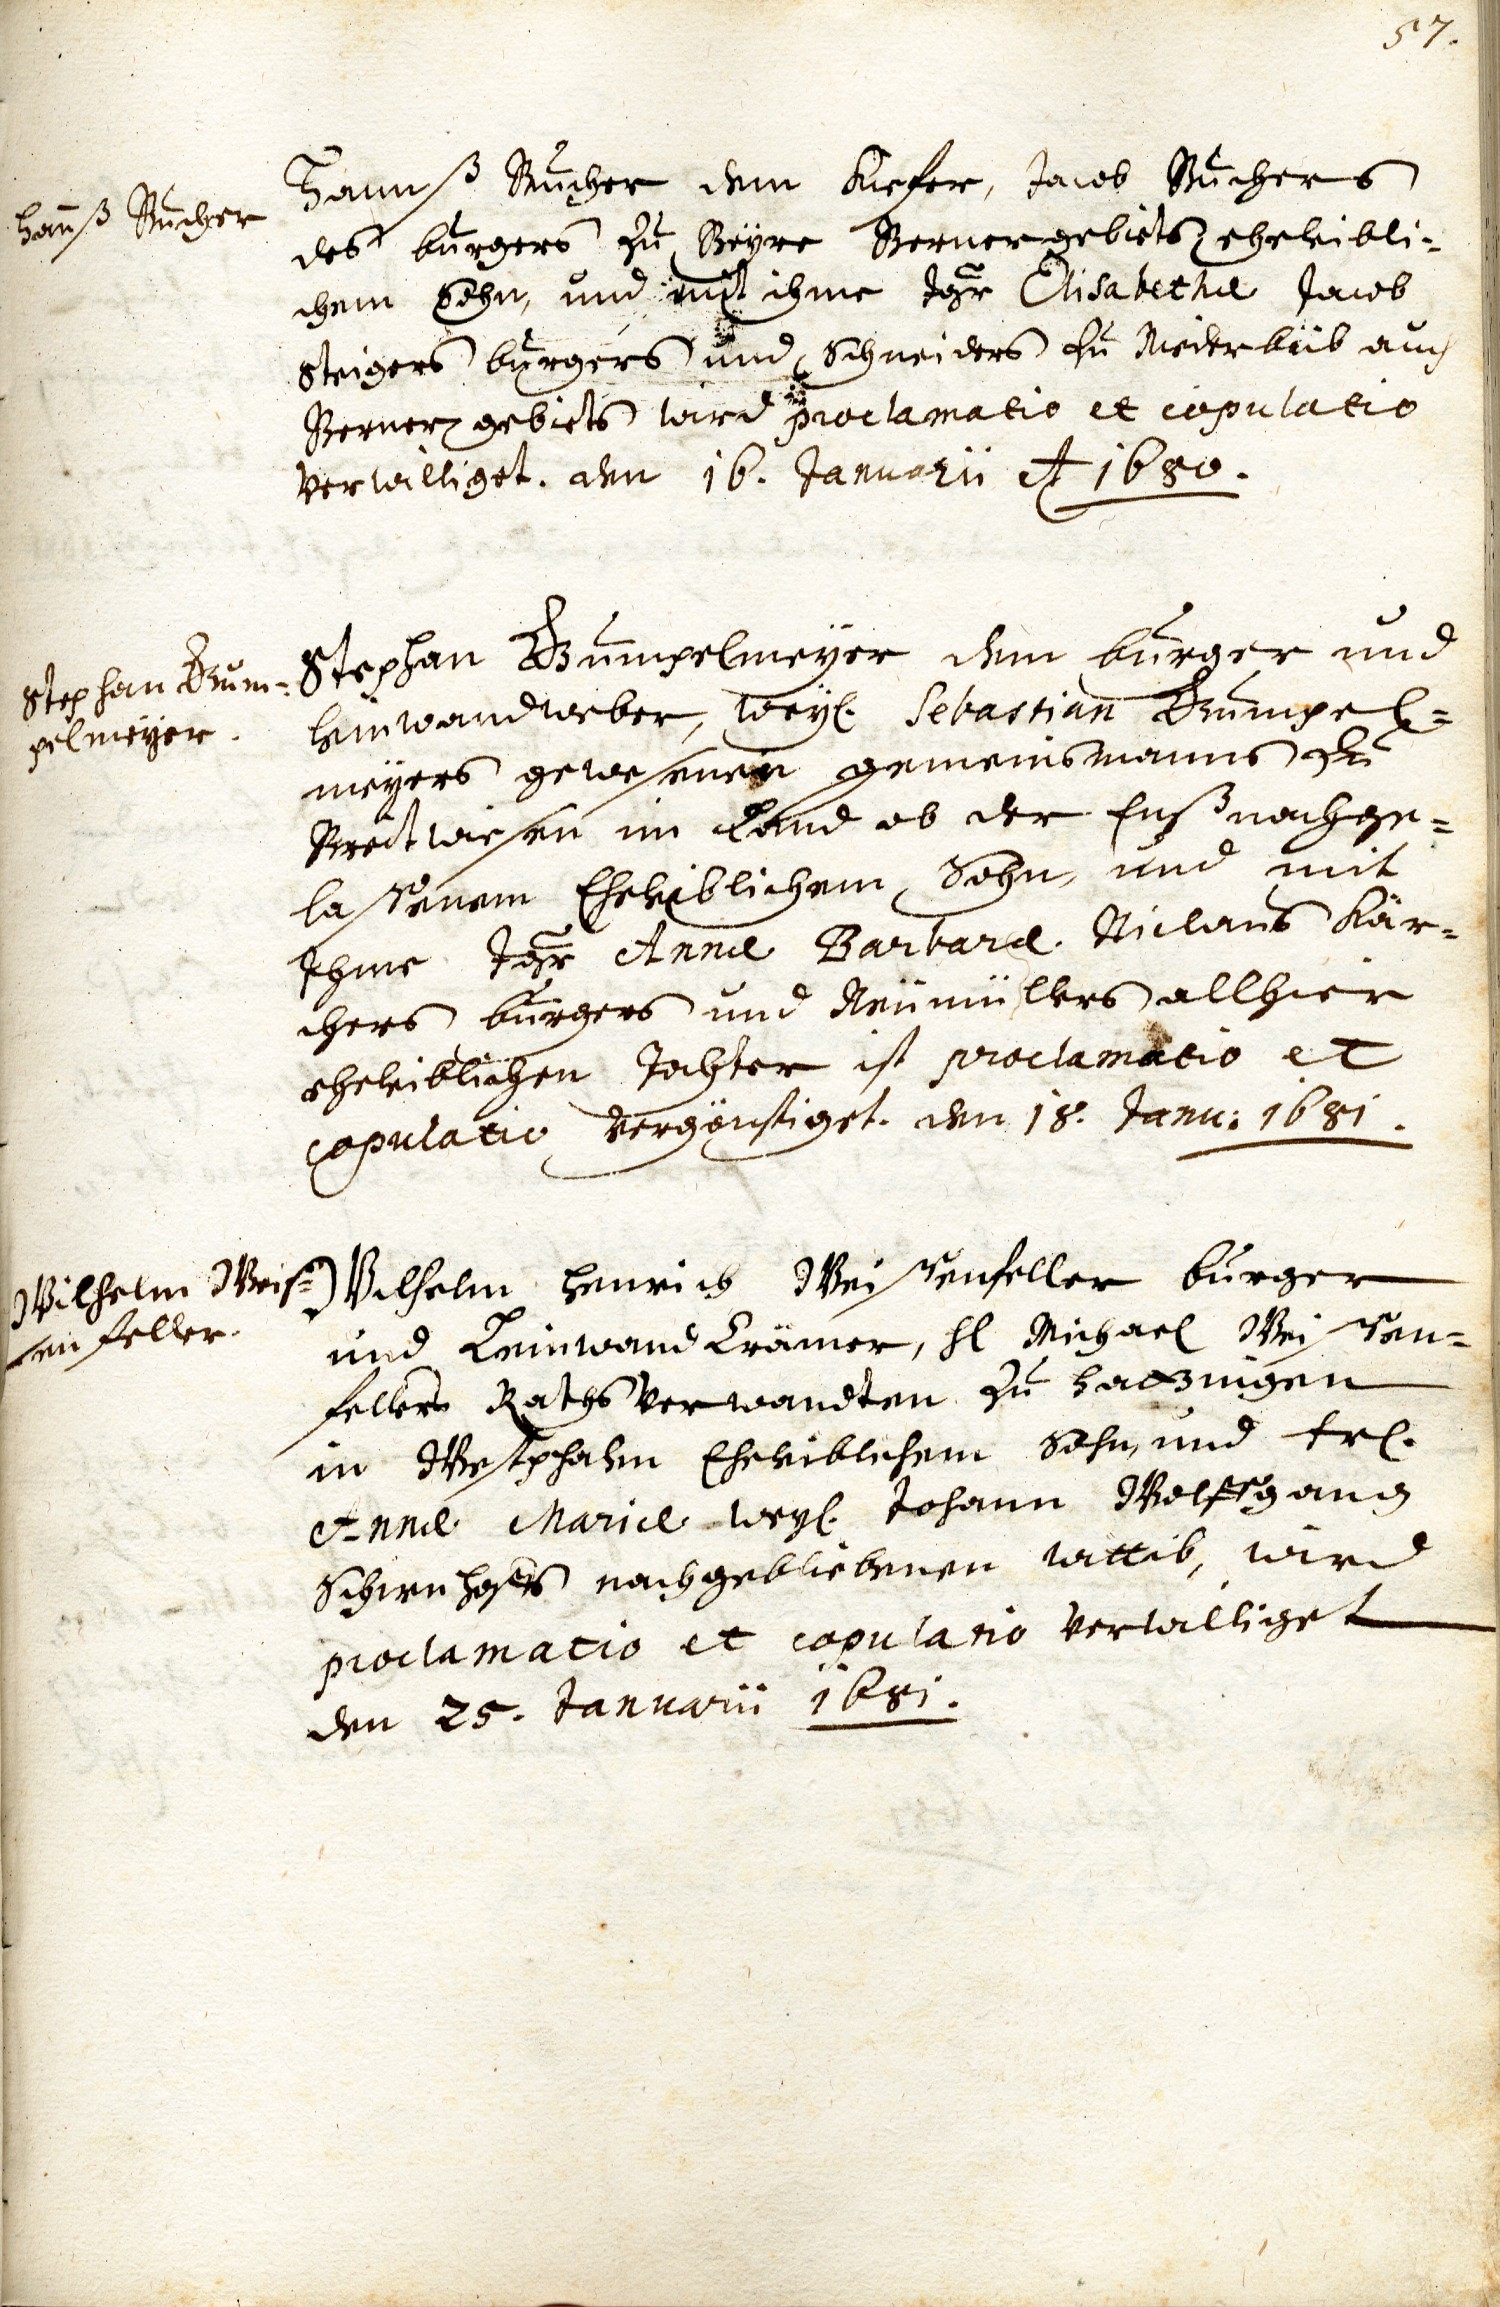 57.
Hannß Bucher
Hannß Bucher dem Kiefer, Jacob Buchers
des burgers zu Beÿre Bernergebiets eheleibli-
chem Sohn, und mit ihme Jgfr Elisabethæ Jacob
Steigers burgers und Schneiders zu Niderbüb auch
Berner gebiets wird proclamatio et copulatio
verwilliget. den 16. Januarii A 1680.
Stephan Gum-
pelmeÿer.
Stephan Gumpelmeÿer dem burger und
leinwandweber, weÿl. Sebastian Gumpel-
meÿers gewesenen gemeinsmanns zu
Breitwiesen im Land ob der Enß nachge-
lassenem Eheleiblichem Sohn, und mit
Ihme Jgfr Annæ Barbaræ Niclaus Kär-
chers burgers und Neumüllers allhier
eheleiblichen Tochter ist proclamatio et
copulatio vergönstiget. den 18. Janu: 1681.
Wilhelm Weis-
senfeller.
Wilhelm Henrich Weissenfeller burger
und Leinwand Crämer, H. Michael Weissen-
fellers Rathsverwandten zu Hatzingen
in Westphalen Eheleiblichem Sohn, und Frl.
Annæ Mariæ weÿl. Johann Wolffgang
nachgebliebenen wittib, wird
proclamatio et copulatio verwilliget
den 25. Januarii 1681.